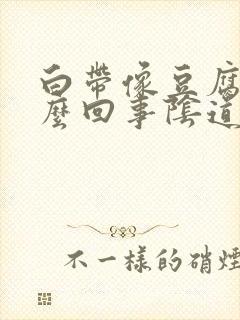 白帶像豆腐
麼回事陰道
不一樣的硝煙